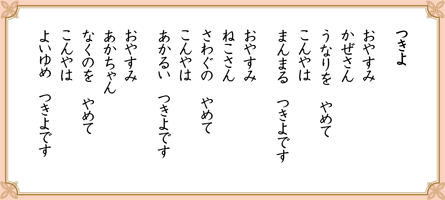 つきよ
おやすみ
かぜさん
うなりを　やめて
こんやは
まんまる　つきよです
おやすみ
ねこさん
さわぐの　やめて
こんやは
あかるい　つきよです
おやすみ
あかちゃん
なくのを　やめて
こんやは
よいゆめ　つきよです